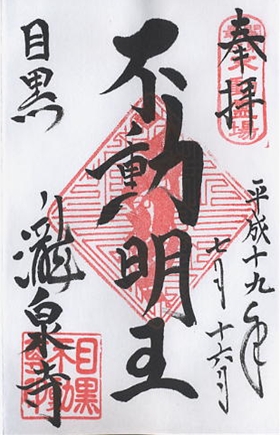 奉拝
平成十九年
七月十六日
不動明王
目黒
瀧泉寺